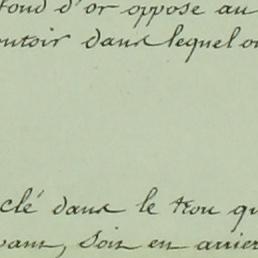 fond d'or oppose au
outoir dans lequel on
clé dans le trou qu
vant, soit en arrier